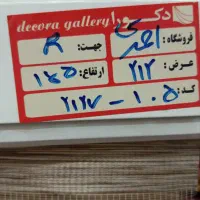 decora gallery دکورا
فروشگاه: احمدی جهت: R
عرض: ۲۱۲ ارتفاع: ۱۷۵
کد: ۲۱۲۷ - ۱۰۵